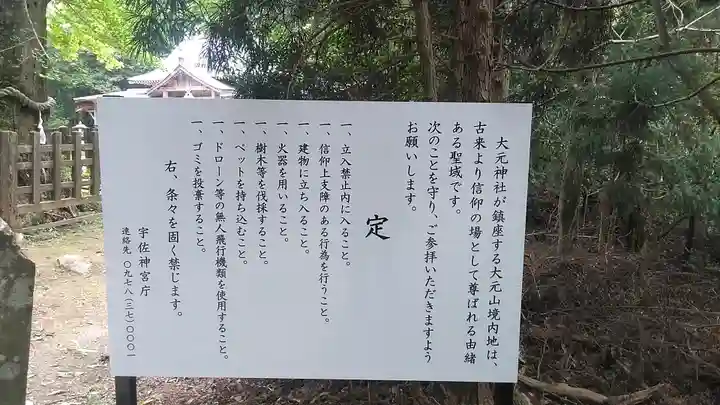 大元神社が鎮座する大元山境内地は、
古来より信仰の場として尊ばれる由緒
ある聖域です。
次のことを守り、ご参拝いただきますよう
お願いします。
定
一、立入禁止内に入ること。
一、信仰上支障のある行為を行うこと。
一、建物に立ち入ること。
一、火器を用いること。
一、樹木等を伐採すること。
一、ペットを持ち込むこと。
一、ドローン等の無人飛行機類を使用すること。
一、ゴミを投棄すること。
右、条々を固く禁じます。
宇佐神宮庁
連絡先 〇九七八（三七）〇〇〇一